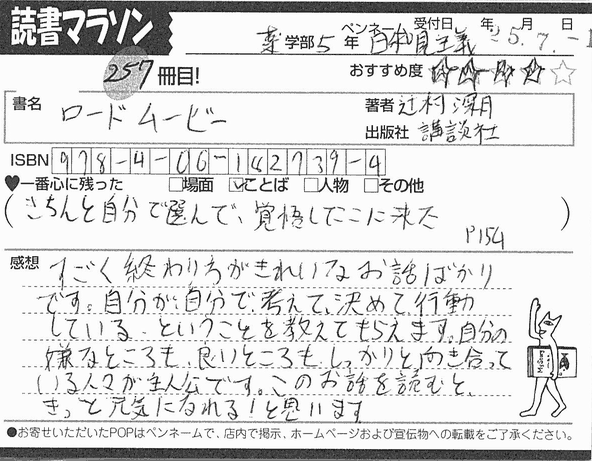 読書マラソン
ペンネーム 受付日 年 月 日
薬 学部 5 年 日和見主義 25.7.-1
257 冊目!
おすすめ度
書名 ロードムービー
著者 辻村深月
出版社 講談社
ISBN 978-4-06-142739-4
♥一番心に残った □場面 ☑ことば □人物 □その他
(きちんと自分で選んで、覚悟してここに来た P154)
感想 すごく終わり方がきれいなお話ばかり
です。自分が、自分で考えて、決めて、行動
している、ということを教えてもらえます。自分の
嫌なところも、良いところも、しっかりと向き合って
いる人々が主人公です。このお話を読むと、
きっと元気になれる!と思います
●お寄せいただいたPOPはペンネームで、店内で掲示、ホームページおよび宣伝物への転載をご了承ください。